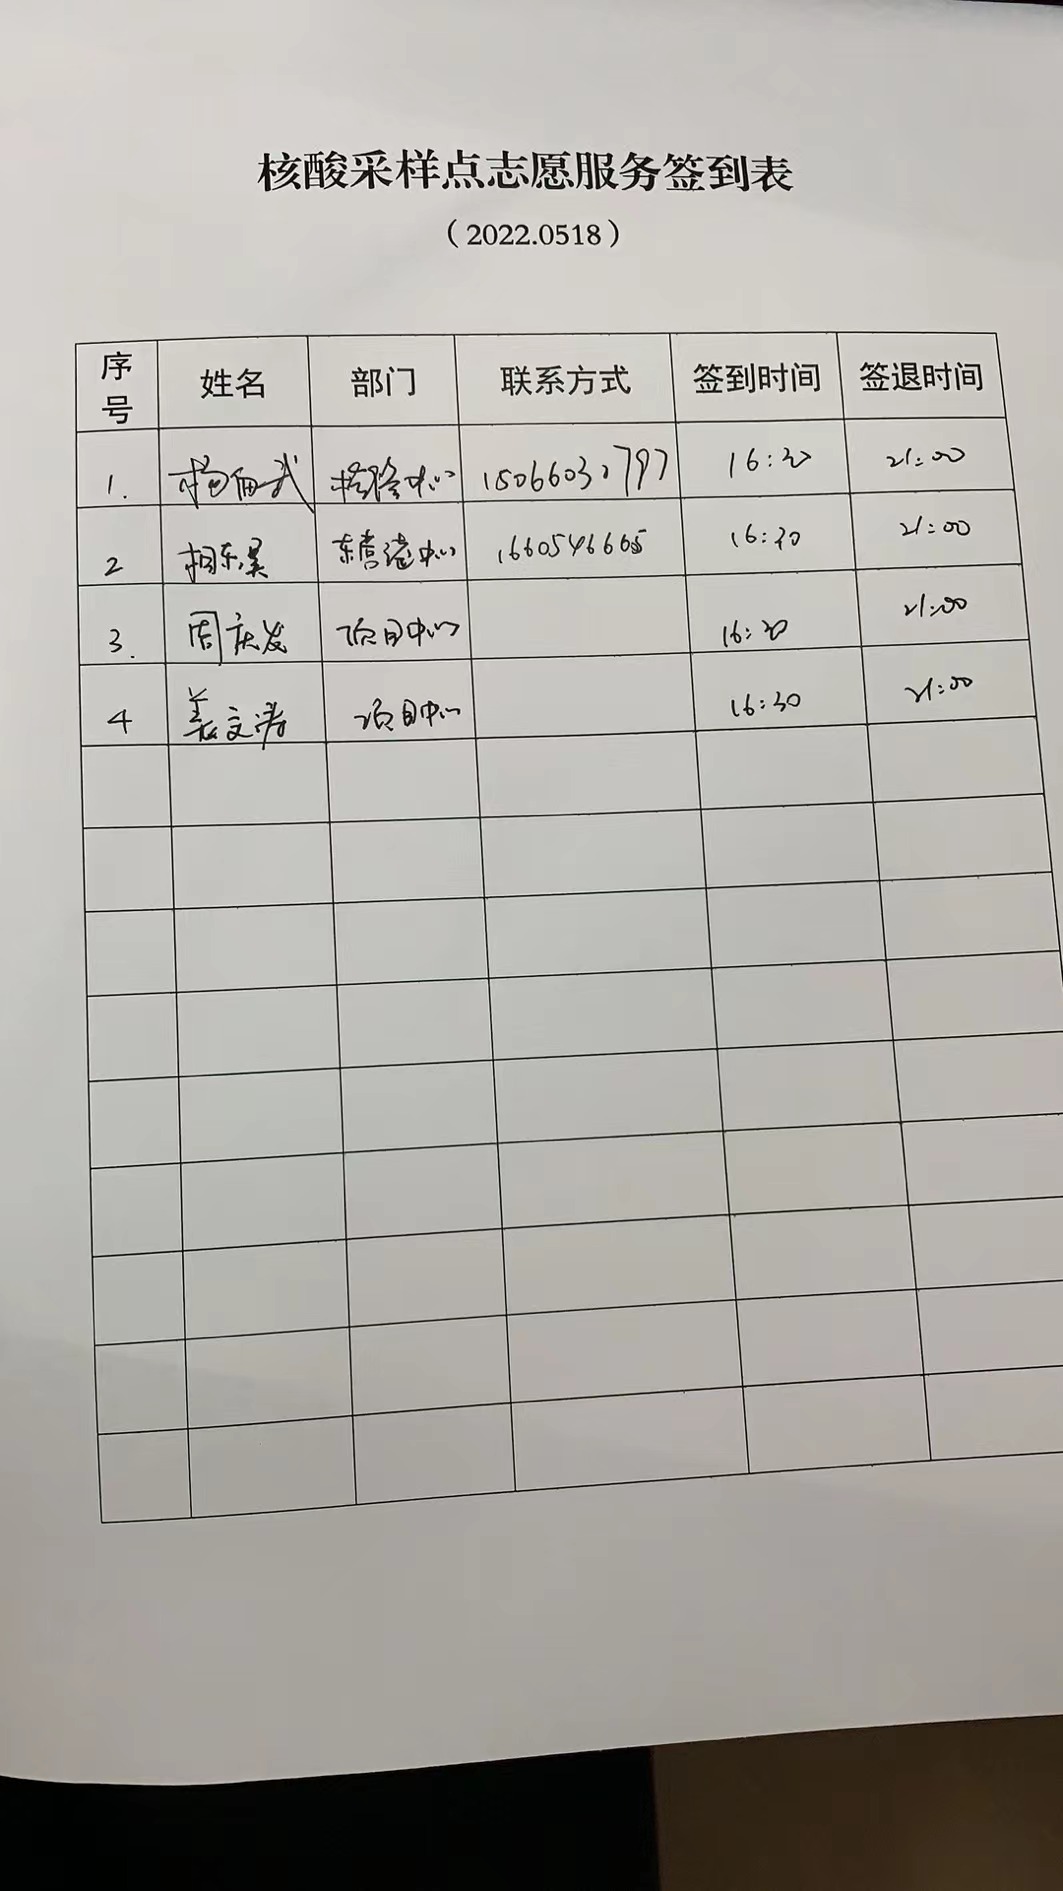 核酸采样点志愿服务签到表
（2022.0518）
序号 姓名 部门 联系方式 签到时间 签退时间
1. 检验中心 16:30 21:00
2 相东昊 东营港中心 16605466605 16:30 21:00
3. 周庆发 项目中心 16:30 21:00
4 姜文涛 项目中心 16:30 21:00